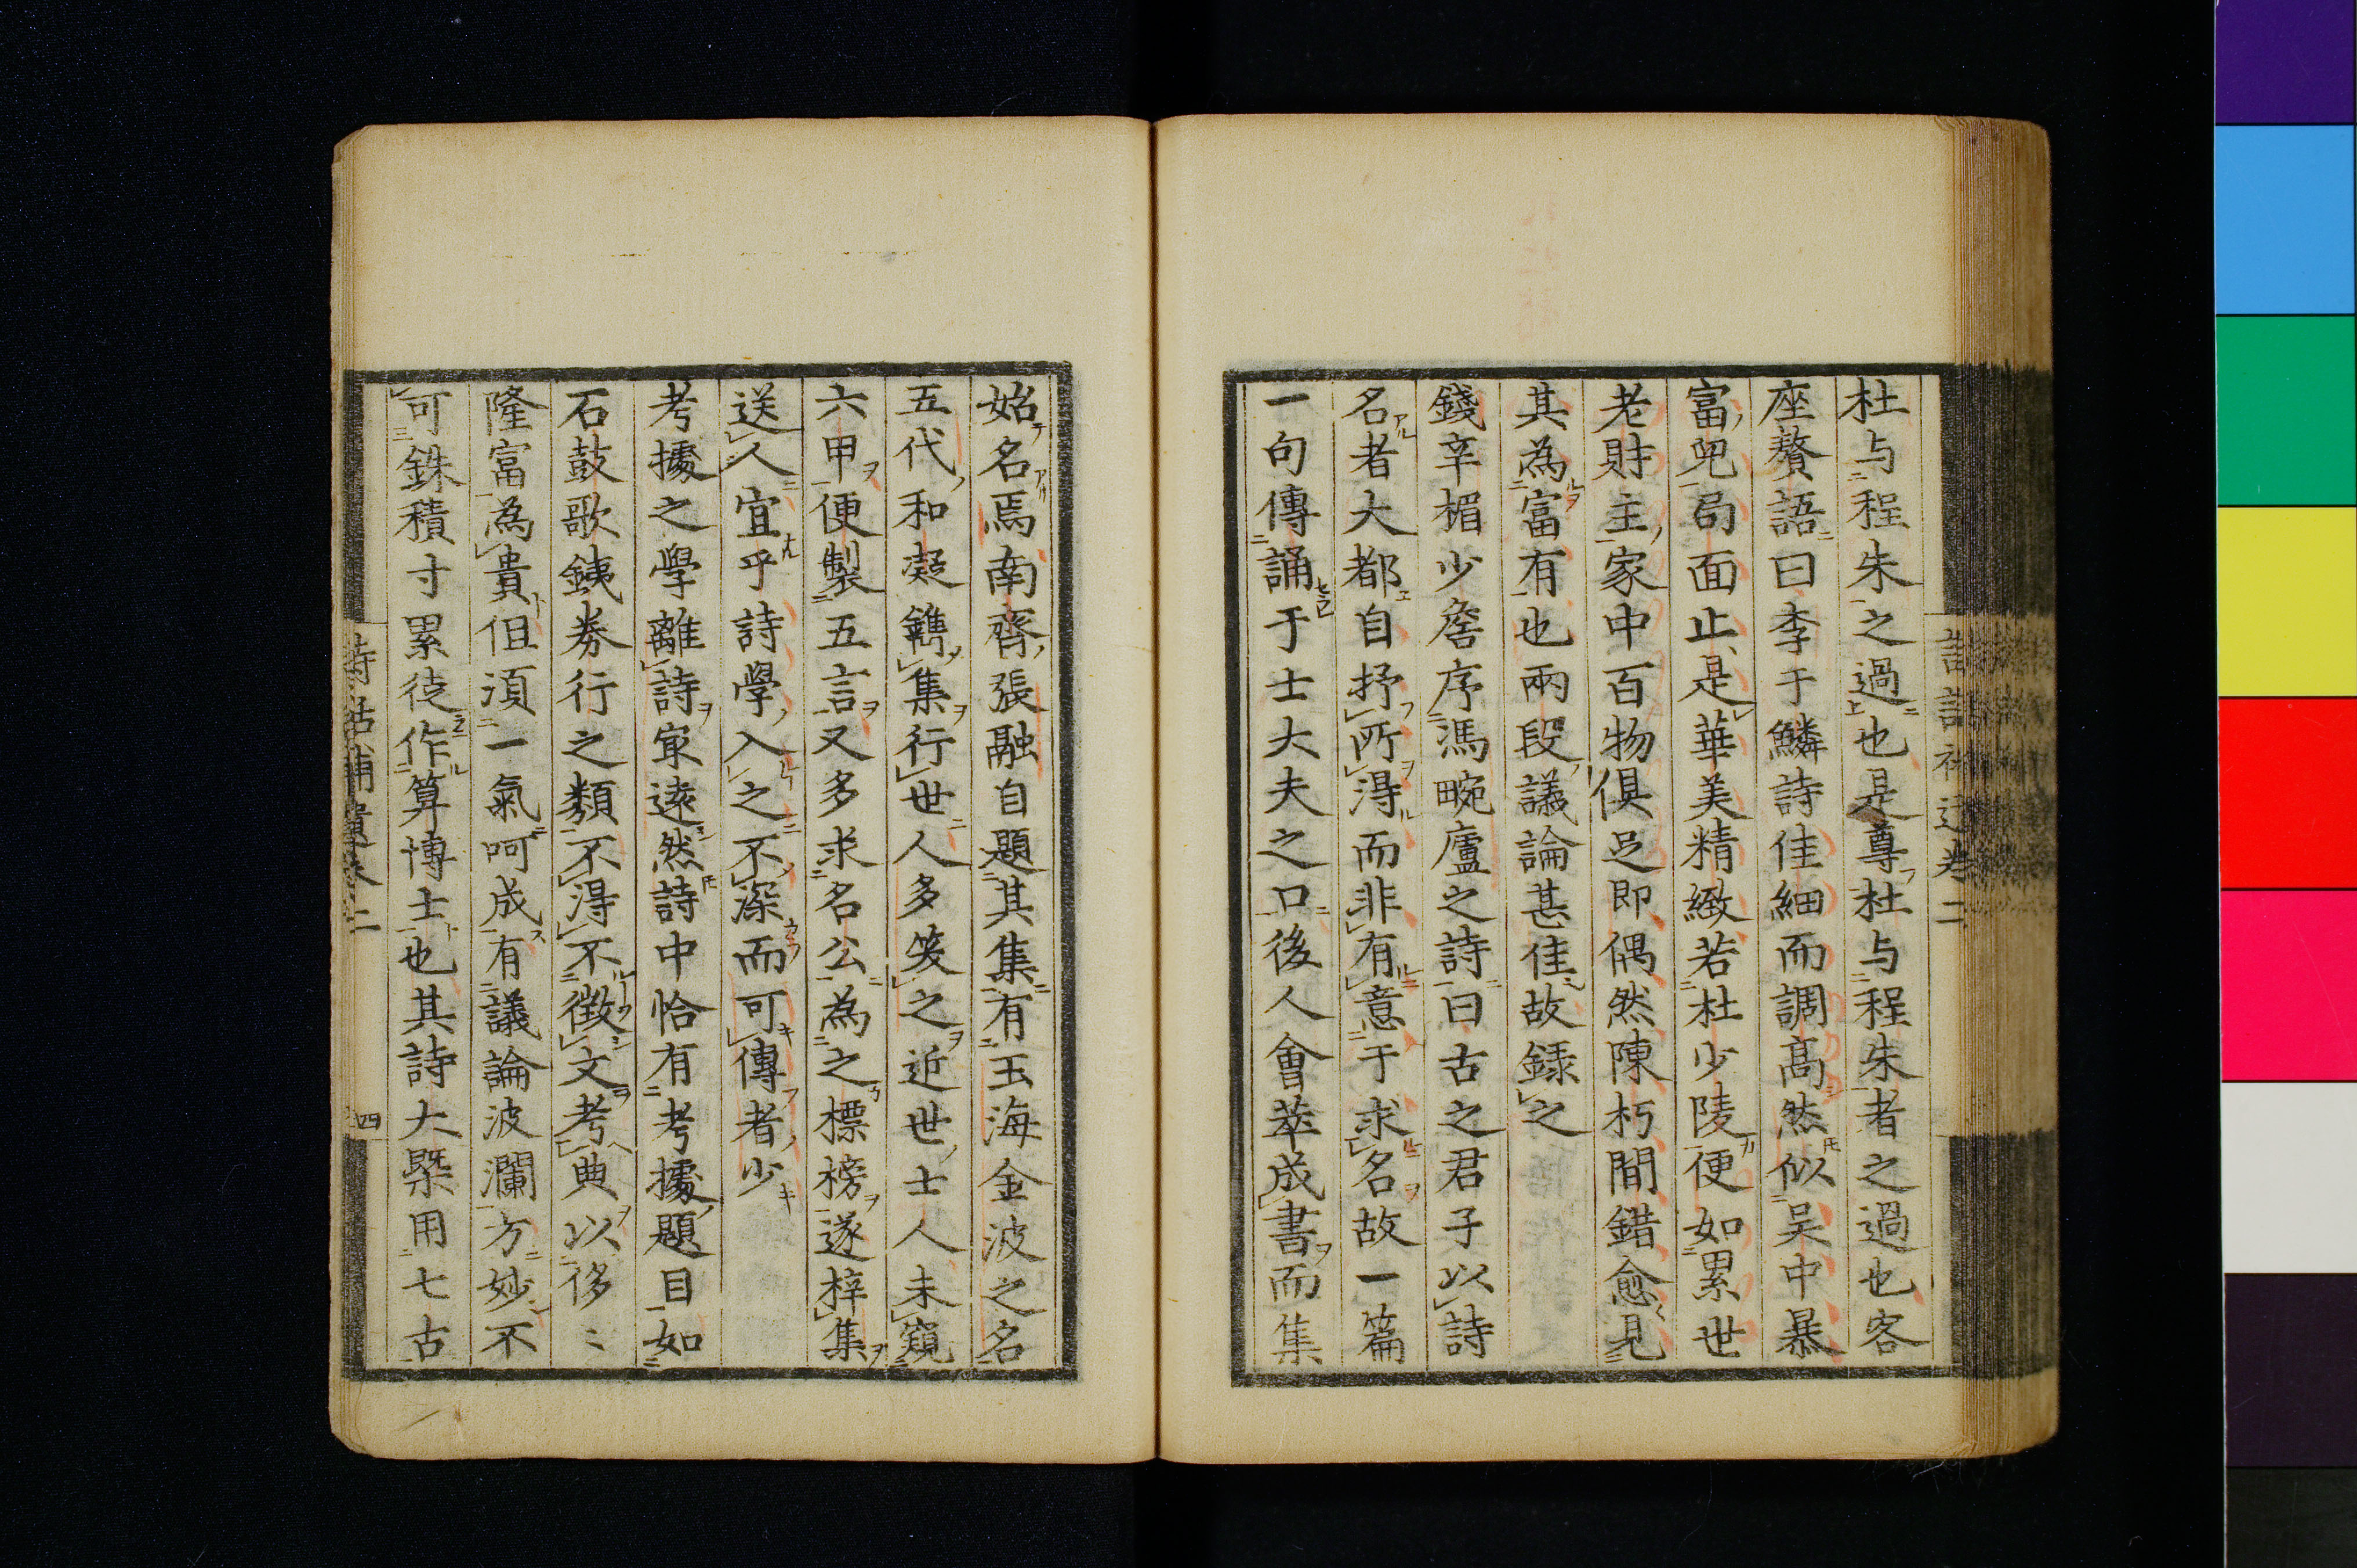 杜与程朱之過也是尊杜与程朱者之過也客
座贅語曰李于鱗詩佳細而調高然似吴中暴
富兒局面止是華美精緻若杜少陵便如累世
老財主家中百物俱足即偶然陳朽間錯愈見
其為富有也兩段議論甚佳故録之
錢辛楣少詹序馮畹廬之詩曰古之君子以詩
名者大都自抒所得而非有意于求名故一篇
一句傳誦于士大夫之口後人會萃成書而集
始名焉南齊張融自題其集有玉海金波之名
五代和凝鐫集行世人多笑之近世士人未窺
六甲便製五言又多求名公為之標榜遂梓集
送人宜乎詩學入之不深而可傳者少
考據之學離詩㝡遠然詩中恰有考據題目如
石鼓歌鉄券行之類不得不徴文考典以侈〻
隆富為貴但湏一氣呵成有議論波瀾方妙不
可銖積寸累徒作算博士也其詩大槩用七古
詩話補遺卷二
四